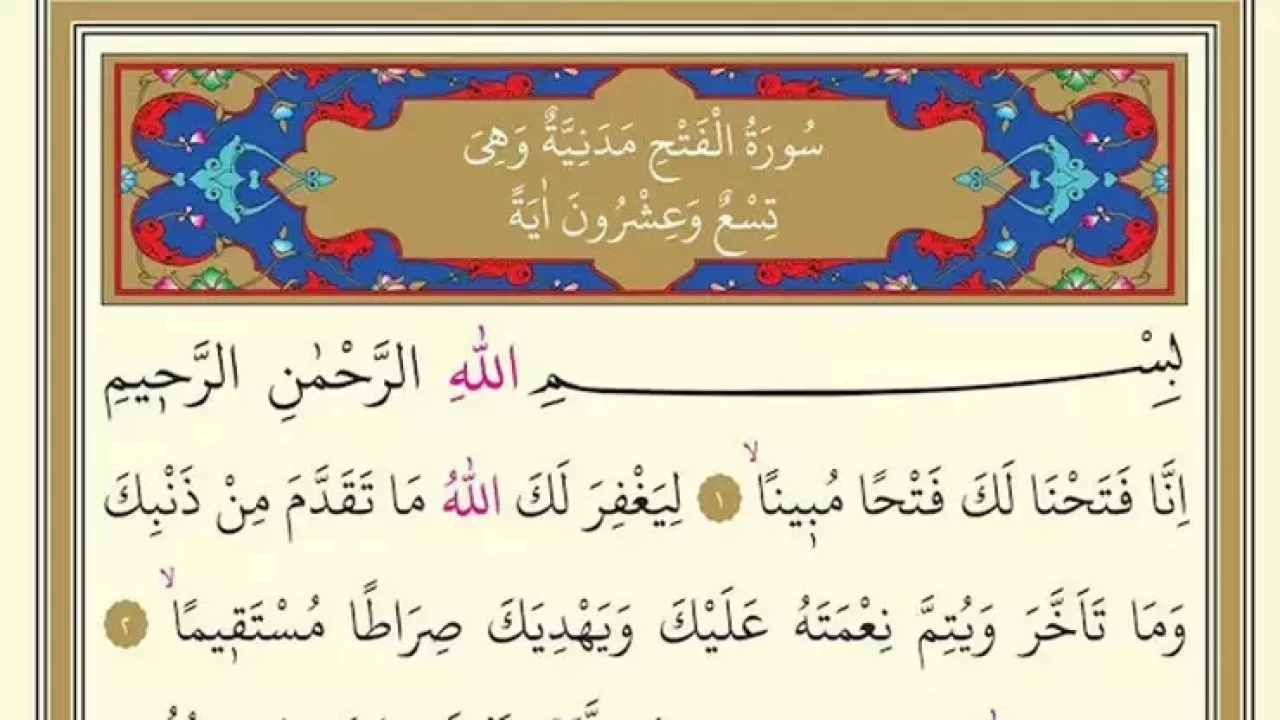 سُورَةُ الْفَتْحِ مَدَنِيَّةٌ وَهِىَ
تِسْعٌ وَعِشْرُونَ اٰيَةً
بِسْمِ اللّٰهِ الرَّحْمٰنِ الرَّح۪يمِ
اِنَّا فَتَحْنَا لَكَ فَتْحًا مُب۪ينًاۙ ١ لِيَغْفِرَ لَكَ اللّٰهُ مَا تَقَدَّمَ مِنْ ذَنْبِكَ
وَمَا تَاَخَّرَ وَيُتِمَّ نِعْمَتَهُ عَلَيْكَ وَيَهْدِيَكَ صِرَاطًا مُسْتَق۪يمًاۙ ٢